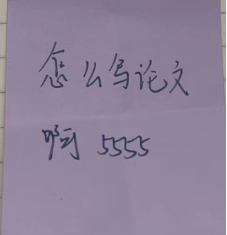 怎么写论文
啊 5555